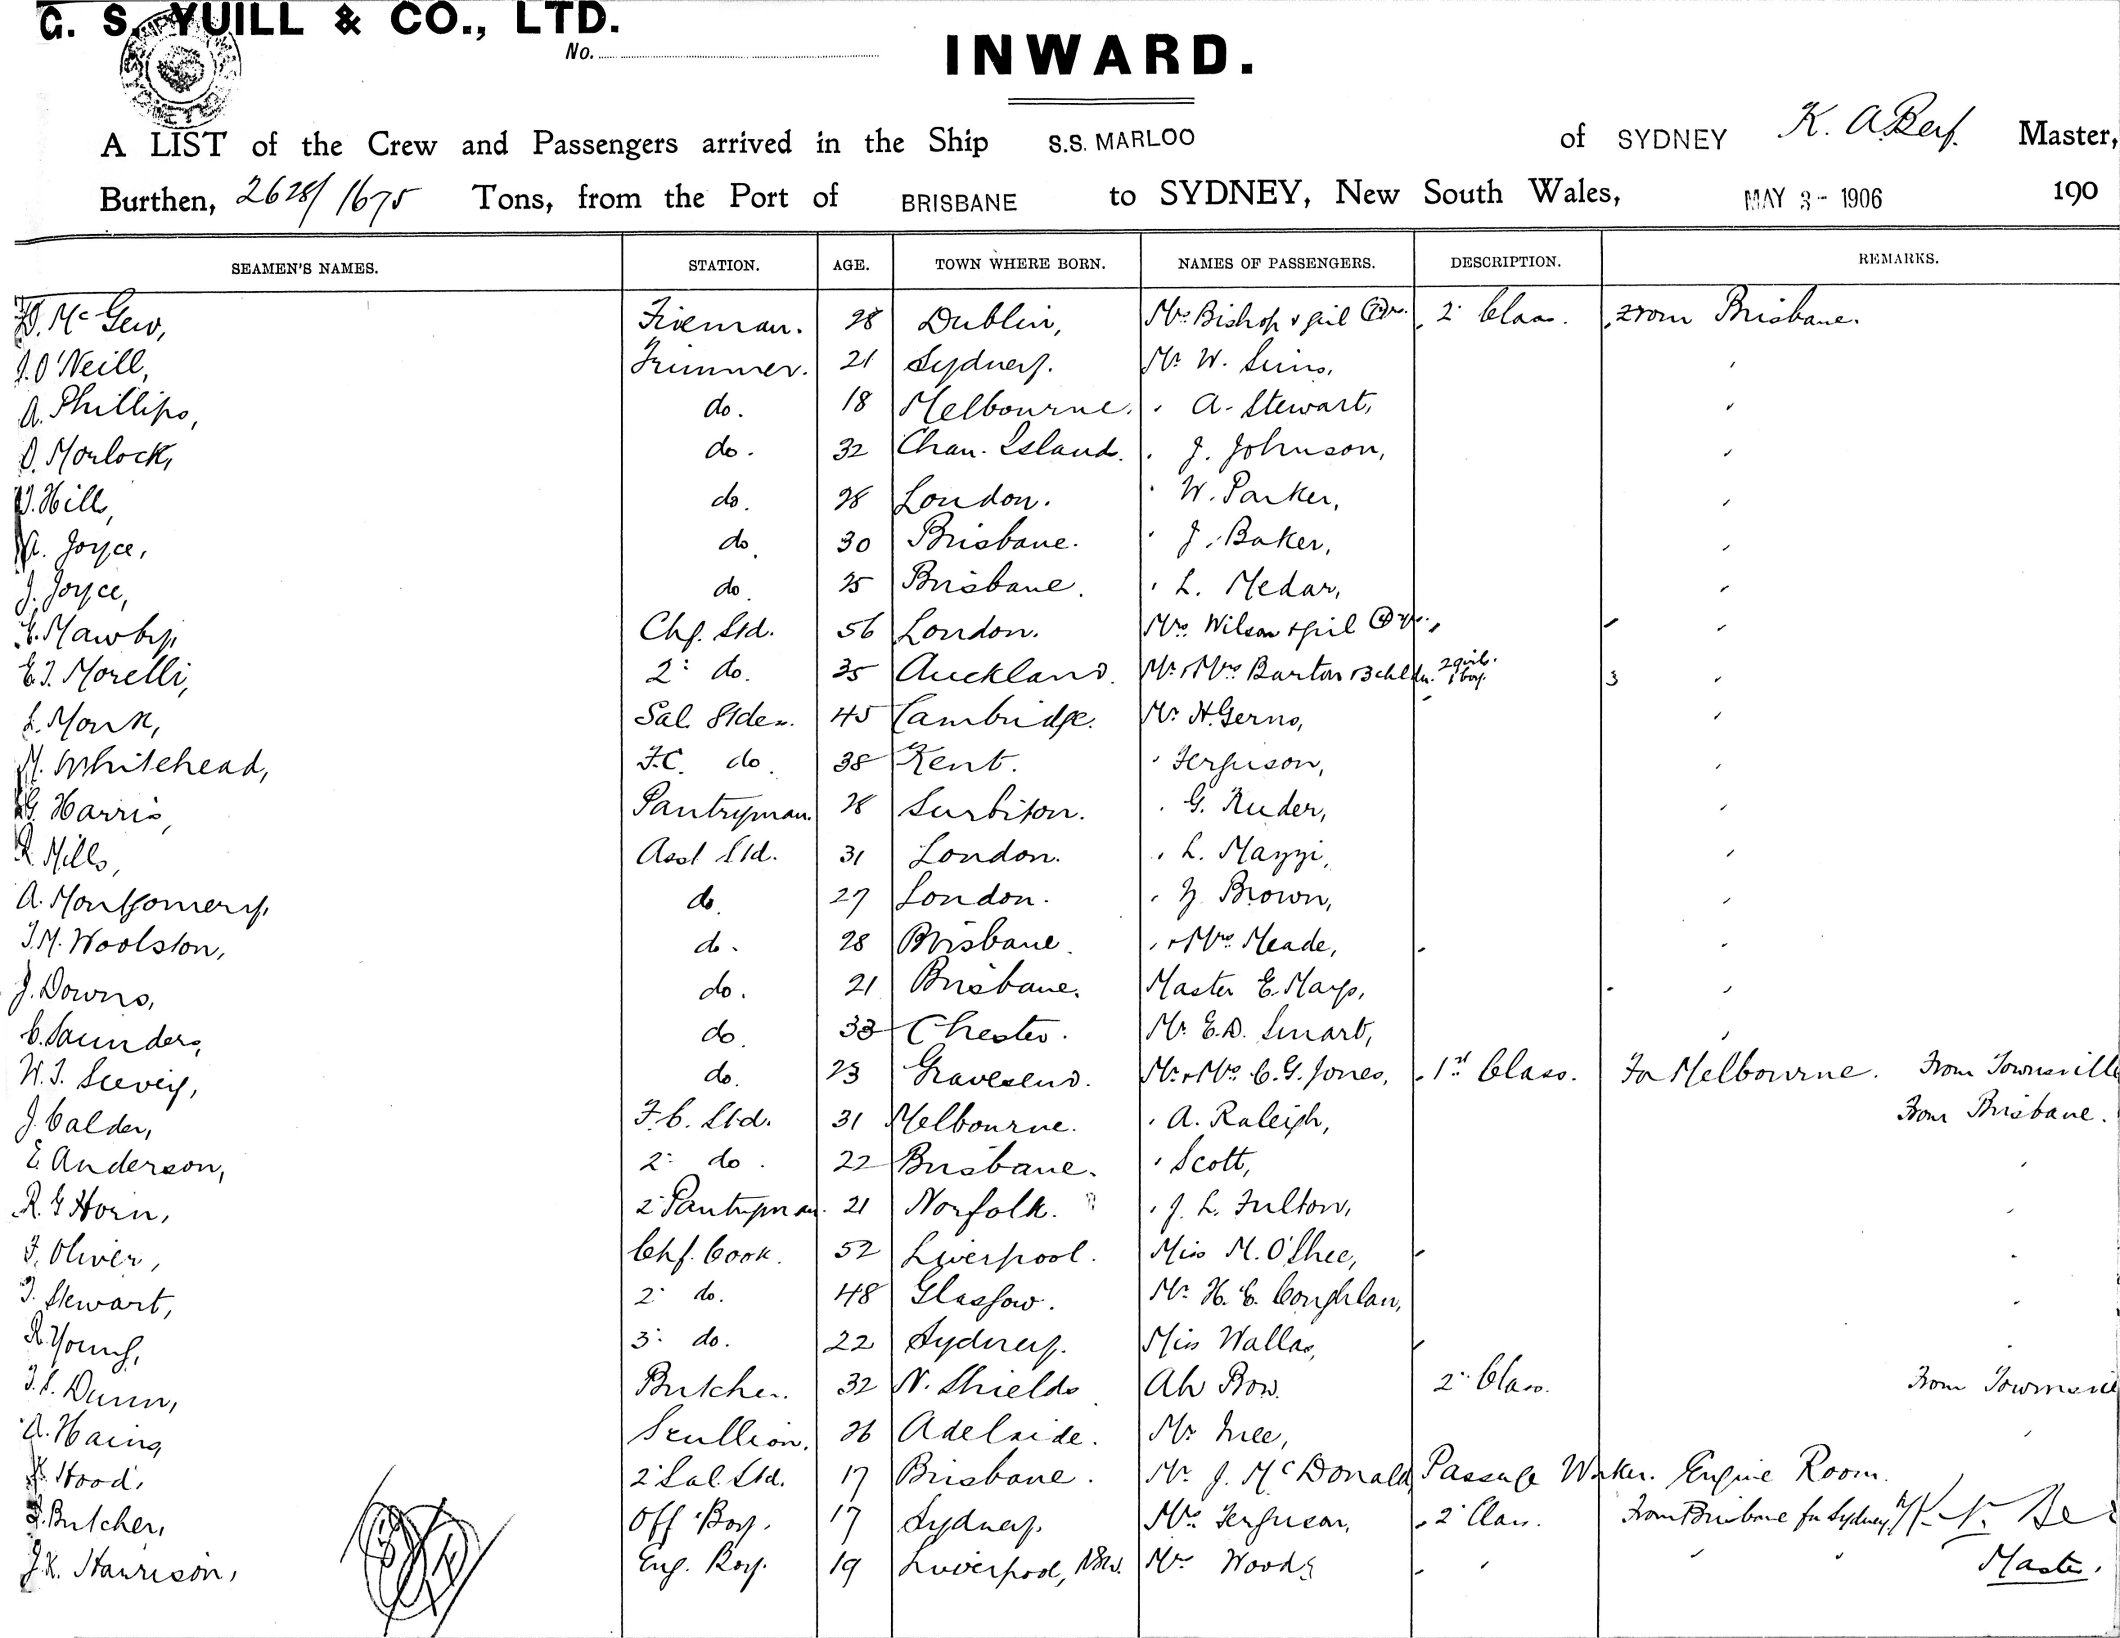 G. S. YUILL & CO., LTD.
No.
INWARD.
A LIST of the Crew and Passengers arrived in the Ship S.S. MARLOO of SYDNEY K. A. Master,
Burthen, 2628/1675 Tons, from the Port of BRISBANE to SYDNEY, New South Wales, MAY 3 - 1906 190
SEAMEN'S NAMES. STATION. AGE. TOWN WHERE BORN. NAMES OF PASSENGERS. DESCRIPTION. REMARKS.
Mc Gew, Fireman. 28 Dublin, Mrs Bishop & girl 2" Class. From Brisbane.
J. O'Neill, Trimmer. 21 Sydney. Mr W. Sims, "
A. Phillips, do. 18 Melbourne. " A. Stewart, "
Morlock, do. 32 Chan. Island. " J. Johnson, "
Hill, do. 28 London. " W. Parker, "
Joyce, do. 30 Brisbane. " J. Baker, "
J. Joyce, do. 25 Brisbane. " L. Medar, "
Mawby, Chf. Std. 56 London. Mrs. Wilson & girl " "
E. J. Morelli, 2" do. 35 Auckland. Mr & Mrs Barton & 3 chldn. 2 girls. 1 boy. 3 "
L. Monk, Sal. Stden. 45 Cambridge. Mr H. Gerns, "
Whitehead, F.C. do. 38 Kent. " Ferguson, "
G. Harris, Pantryman. 28 Surbiton. " G. Ruder, "
R. Mills, Asst Std. 31 London. " L. Mazzi, "
A. Montgomery, do. 27 London. " Brown, "
J. M. Woolston, do. 28 Brisbane. " & Mrs Meade, "
J. Downs, do. 21 Brisbane. Master E. Mays, "
C. Saunders, do. 33 Chester. Mr. E. D. Smart, "
W. J. do. 23 Gravesend. Mr & Mrs C. G. Jones, 1st Class. For Melbourne. From Townsville
J. Calder, F.C. Std. 31 Melbourne. " A. Raleigh, From Brisbane.
E. Anderson, 2" do. 22 Brisbane. " Scott, "
R. G Horn, 2" Pantryman. 21 Norfolk. " J. L. Fulton, "
F. Oliver, Chf. Cook. 52 Liverpool. Miss M. O'Shee, "
J. Stewart, 2" do. 48 Glasgow. Mr H. E. Coughlan, "
R. Young, 3" do. 22 Sydney. Miss Wallas, "
Dunn, Butcher. 32 N. Shields Ah Bow. 2" Class. From Townsvil
A. Hains, Scullion. 26 Adelaide. Mr "
Hood, 2" Sal. Std. 17 Brisbane. Mr J. McDonald, Passage Worker. Engine Room.
Butcher, Off. Boy. 17 Sydney. Mrs Ferguson, 2" Class. From Brisbane for Sydney,
J. K. Harrison, Eng. Boy. 19 Liverpool, NSW. Mr Woods " " " Master.